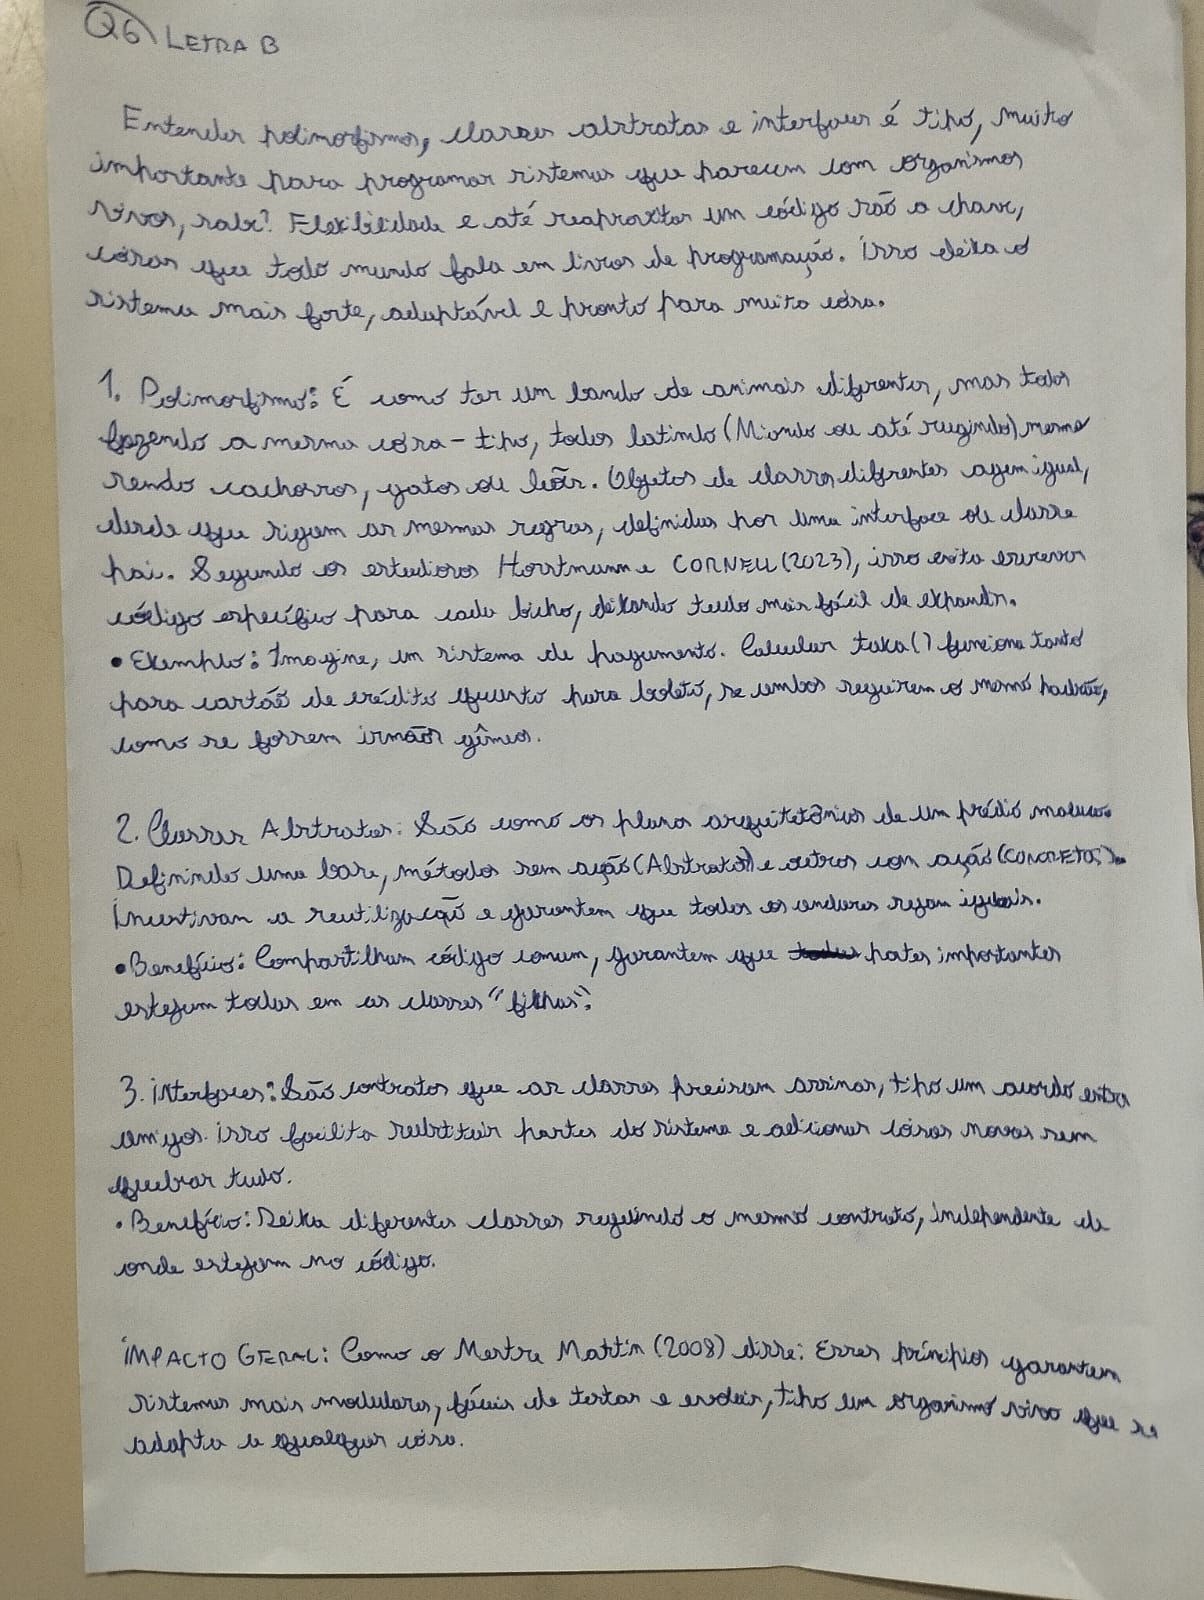 Q6) LETRA B
Entender polimorfismos, classes abstratas e interfaces é tipo, muito
importante para programar sistemas que parecem com organismos
vivos, sabe? Flexibilidade e até reaproveitar um código são a chave,
coisas que todo mundo fala em livros de programação. Isso deixa o
sistema mais forte, adaptável e pronto para muita coisa.
1. Polimorfismo: É como ter um bando de animais diferentes, mas todos
fazendo a mesma coisa - tipo, todos latindo (Miando ou até rugindo) mesmo
sendo cachorros, gatos ou leões. Objetos de classes diferentes agem igual,
desde que sigam as mesmas regras, definidas por uma interface ou classe
pai. Segundo os estudiosos Horstmann e CORNELL (2023), isso evita escrever
código específico para cada bicho, deixando tudo mais fácil de expandir.
• Exemplo: Imagine, um sistema de pagamento. Calcular taxa() funciona tanto
para cartão de crédito quanto para boleto, se ambos seguirem o mesmo padrão,
como se fossem irmãos gêmeos.
2. Classes Abstratas: São como os planos arquitetônicos de um prédio maluco.
Definindo uma base, métodos sem ação (Abstratos) e outros com ação (CONCRETOS).
Incentivam a reutilização e garantem que todos os andares sejam iguais.
• Benefício: Compartilham código comum, garantem que pates importantes
estejam todas em as classes "filhas".
3. Interfaces: São contratos que as classes precisam assinar, tipo um acordo entre
amigos. Isso facilita substituir partes do sistema e adicionar coisas novas sem
quebrar tudo.
• Benefício: Deixa diferentes classes seguindo o mesmo contrato, independente de
onde estejam no código.
IMPACTO GERAL: Como o Mestre Martin (2008) disse: Esses princípios garantem
sistemas mais modulares, fáceis de testar e evoluir, tipo um organismo vivo que se
adapta a qualquer coisa.